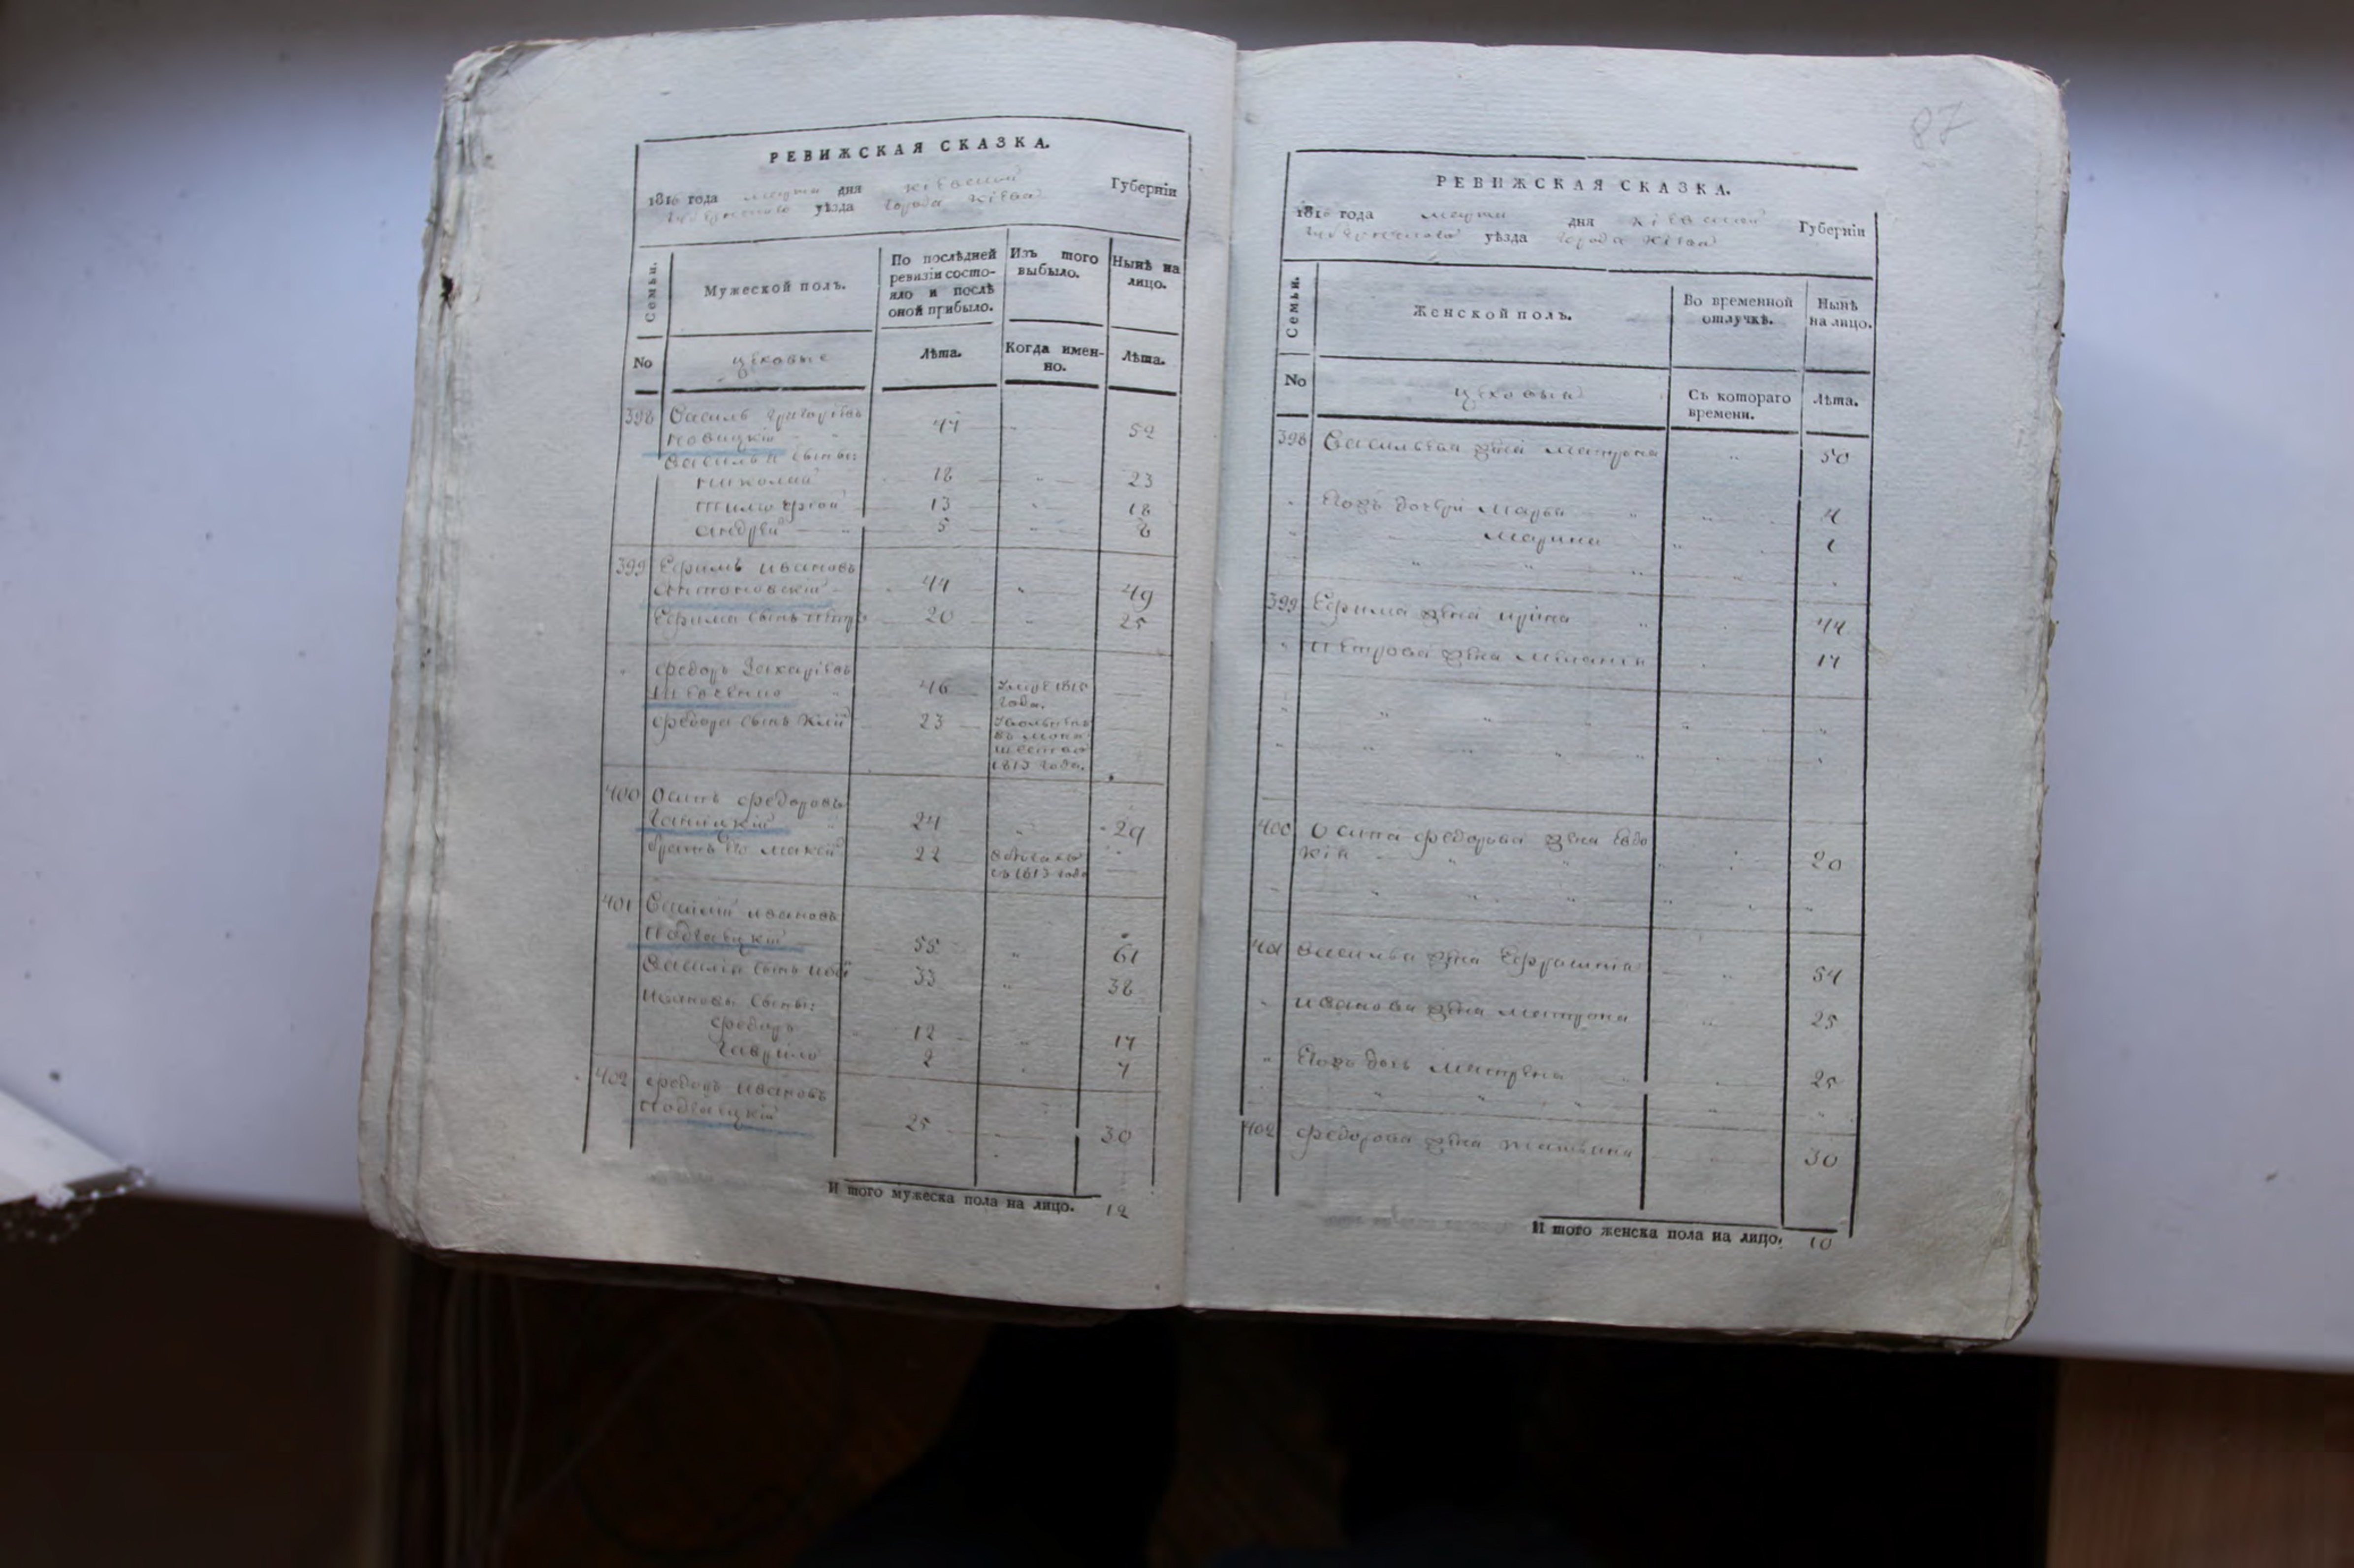 87
РЕВИЖСКАЯ СКАЗКА.
1816 года марта дня Кіевской Губерніи
уѣзда города Кіева
Семьи.
Мужеской полъ.
По послѣдней ревизіи состо-
яло и послѣ оной прибыло.
Изъ того выбыло.
Нынѣ на лицо.
No
цеховые
Лѣта.
Когда имен-
но.
Лѣта.
398 Василь Григорьевъ
Новицкій 47 52
Василья сыны:
Николай 18 23
Тимофей 13 18
Андрей 5 8
399 Ефимъ Ивановъ
Антоновскій 44 49
Ефима сынъ Петръ 20 25
Федоръ Захаріевъ
Шевченко 46 умре 1815
года.
Федора сынъ 23
въ мона
шество
1813 года.
400 Осипъ Федоровъ
24 29
братъ его 22
съ 1813 года
401 Василій Ивановъ
Подгаецкій 55 61
Василія сынъ 33 38
Ивановы сыны:
Федоръ 12 17
Гаврило 2 7
402 Федоръ Ивановъ
Подгаецкій 25 30
И того мужеска пола на лицо. 12
РЕВИЖСКАЯ СКАЗКА.
1816 года марта дня Кіевской Губерніи
уѣзда города Кіева
Семьи.
Женской полъ.
Во временной отлучкѣ.
Нынѣ на лицо.
No
цеховыя
Съ котораго времени.
Лѣта.
398 Васильева жена Матрона 50
Ихъ дочери Марья 4
Марина 1
399 Ефима жена Ирина 44
Петрова жена Меланія 17
400 Осипа Федорова жена Евдо
кія 20
401 Васильева жена Ефросинія 54
Иванова жена Матрона 25
Ихъ дочь Матрена 25
402 Федорова жена Татьяна 30
И того женска пола на лицо. 10